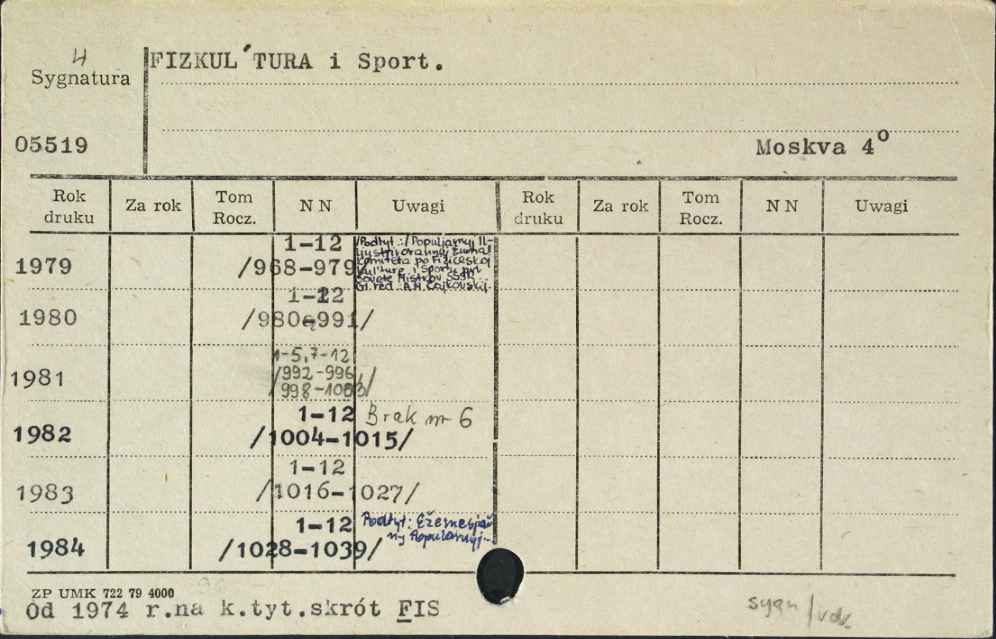 4
Sygnatura
FIZKUL´TURA i Sport.
05519
Moskva 4°
Rok druku Za rok Tom Rocz. NN Uwagi Rok druku Za rok Tom Rocz. NN Uwagi
1979 1-12 /968-979
/Podtyt.:/Populjarnyj Il-
ljustrirovannyj Žurnal
Komiteta po Fizičeskoj
Kul'ture i Sportu pri
Sovete Ministrov SSSR.
Gl. red.
1980 1-12
/980-991/
1981 1-5,7-12
/992-996
/998-1003/
1982 1-12 Brak nr 6
/1004-1015/
1983 1-12
/1016-1027/
1984 1-12 Podtyt: Ežemesjač
nyj Populjarnyj-
/1028-1039/
ZP UMK 722 79 4000
Od 1974 r.na k.tyt.skrót FIS
sygn/